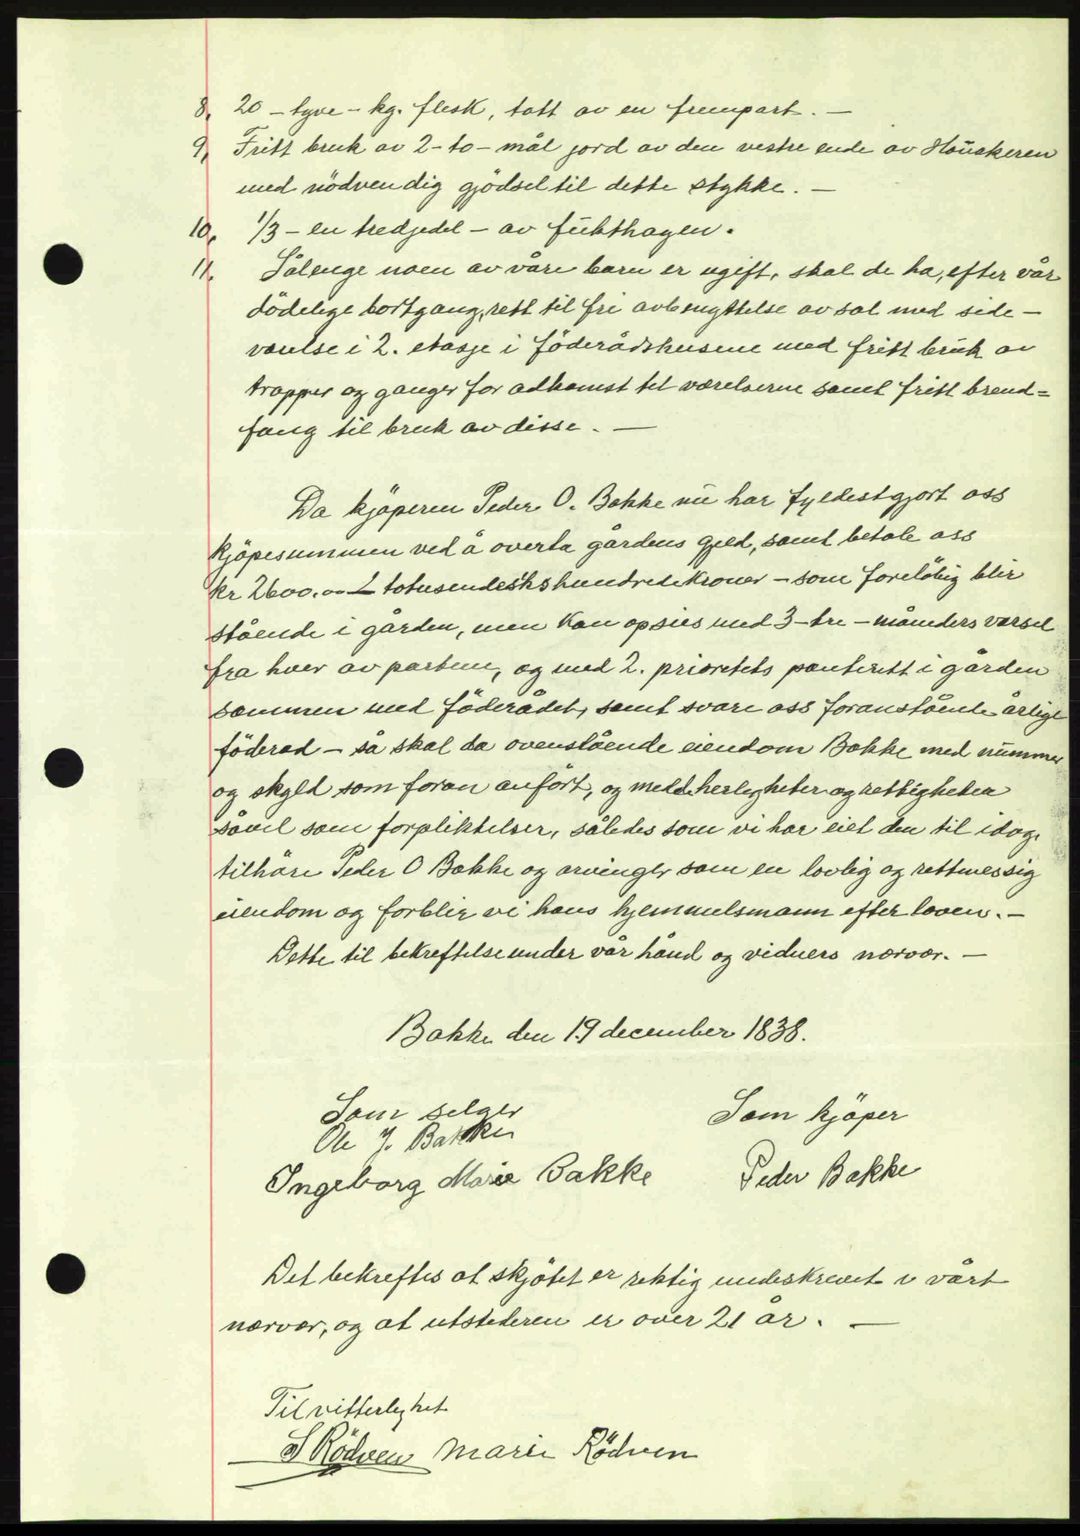 8, 20 – tyve – kg. flesk, tatt av en frempart. –
9, Fritt bruk av 2 – to – mål jord av den vestre ende av Hauåkeren
med nödvendig gjödsel til dette stykke. –
10, 1/3 – en tredjedel – av frükthagen.
11. Sålenge noen av våre barn er ugift, skal de ha, efter vår
dödelige bortgang, rett til fri avbenyttelse av sal med side –
værelse i 2. etasje i föderådshusene med fritt brük av
trapper og ganger for adkomst til værelserne samt fritt brend=
fang til bruk av disse. –
Da kjöperen Peder O. Bakke nü har fyldestgjort oss
kjöpesummen ved å overta gårdens gjeld, samt betale oss
kr 2600.00 – totusendesekshundredekroner – som forelöbig blir
stående i gården, men kan opsies med 3 – tre – måneders varsel
fra hver av partene, og med 2. prioritets panterett i gården
sammen med föderådet, samt svare oss foranstående årlige
föderad – så skal da ovenstående eiendom Bakke med nümmer
og skyld som foran anfört, og med herligheter og rettigheter
såvel som forpliktelser, således som vi har eiet den til idag,
tilhöre Peder O Bakke og arvinger som en lovlig og rettmessig
eiendom og forblir vi hans hjemmelsmann efter loven. –
Dette til bekreftelse under vår hånd og vidners nærvær. –
Bakke den 19 december 1838.
Som selger Som kjöper
Ole J. Bakken
Ingeborg Marie Bakke Peder Bakke
Det bekreftes at skjötet er riktig underskrevet i vårt
nærvær, og at utstederen er over 21 år. –
Til vitterlighet
S Rödven Marie Rödven